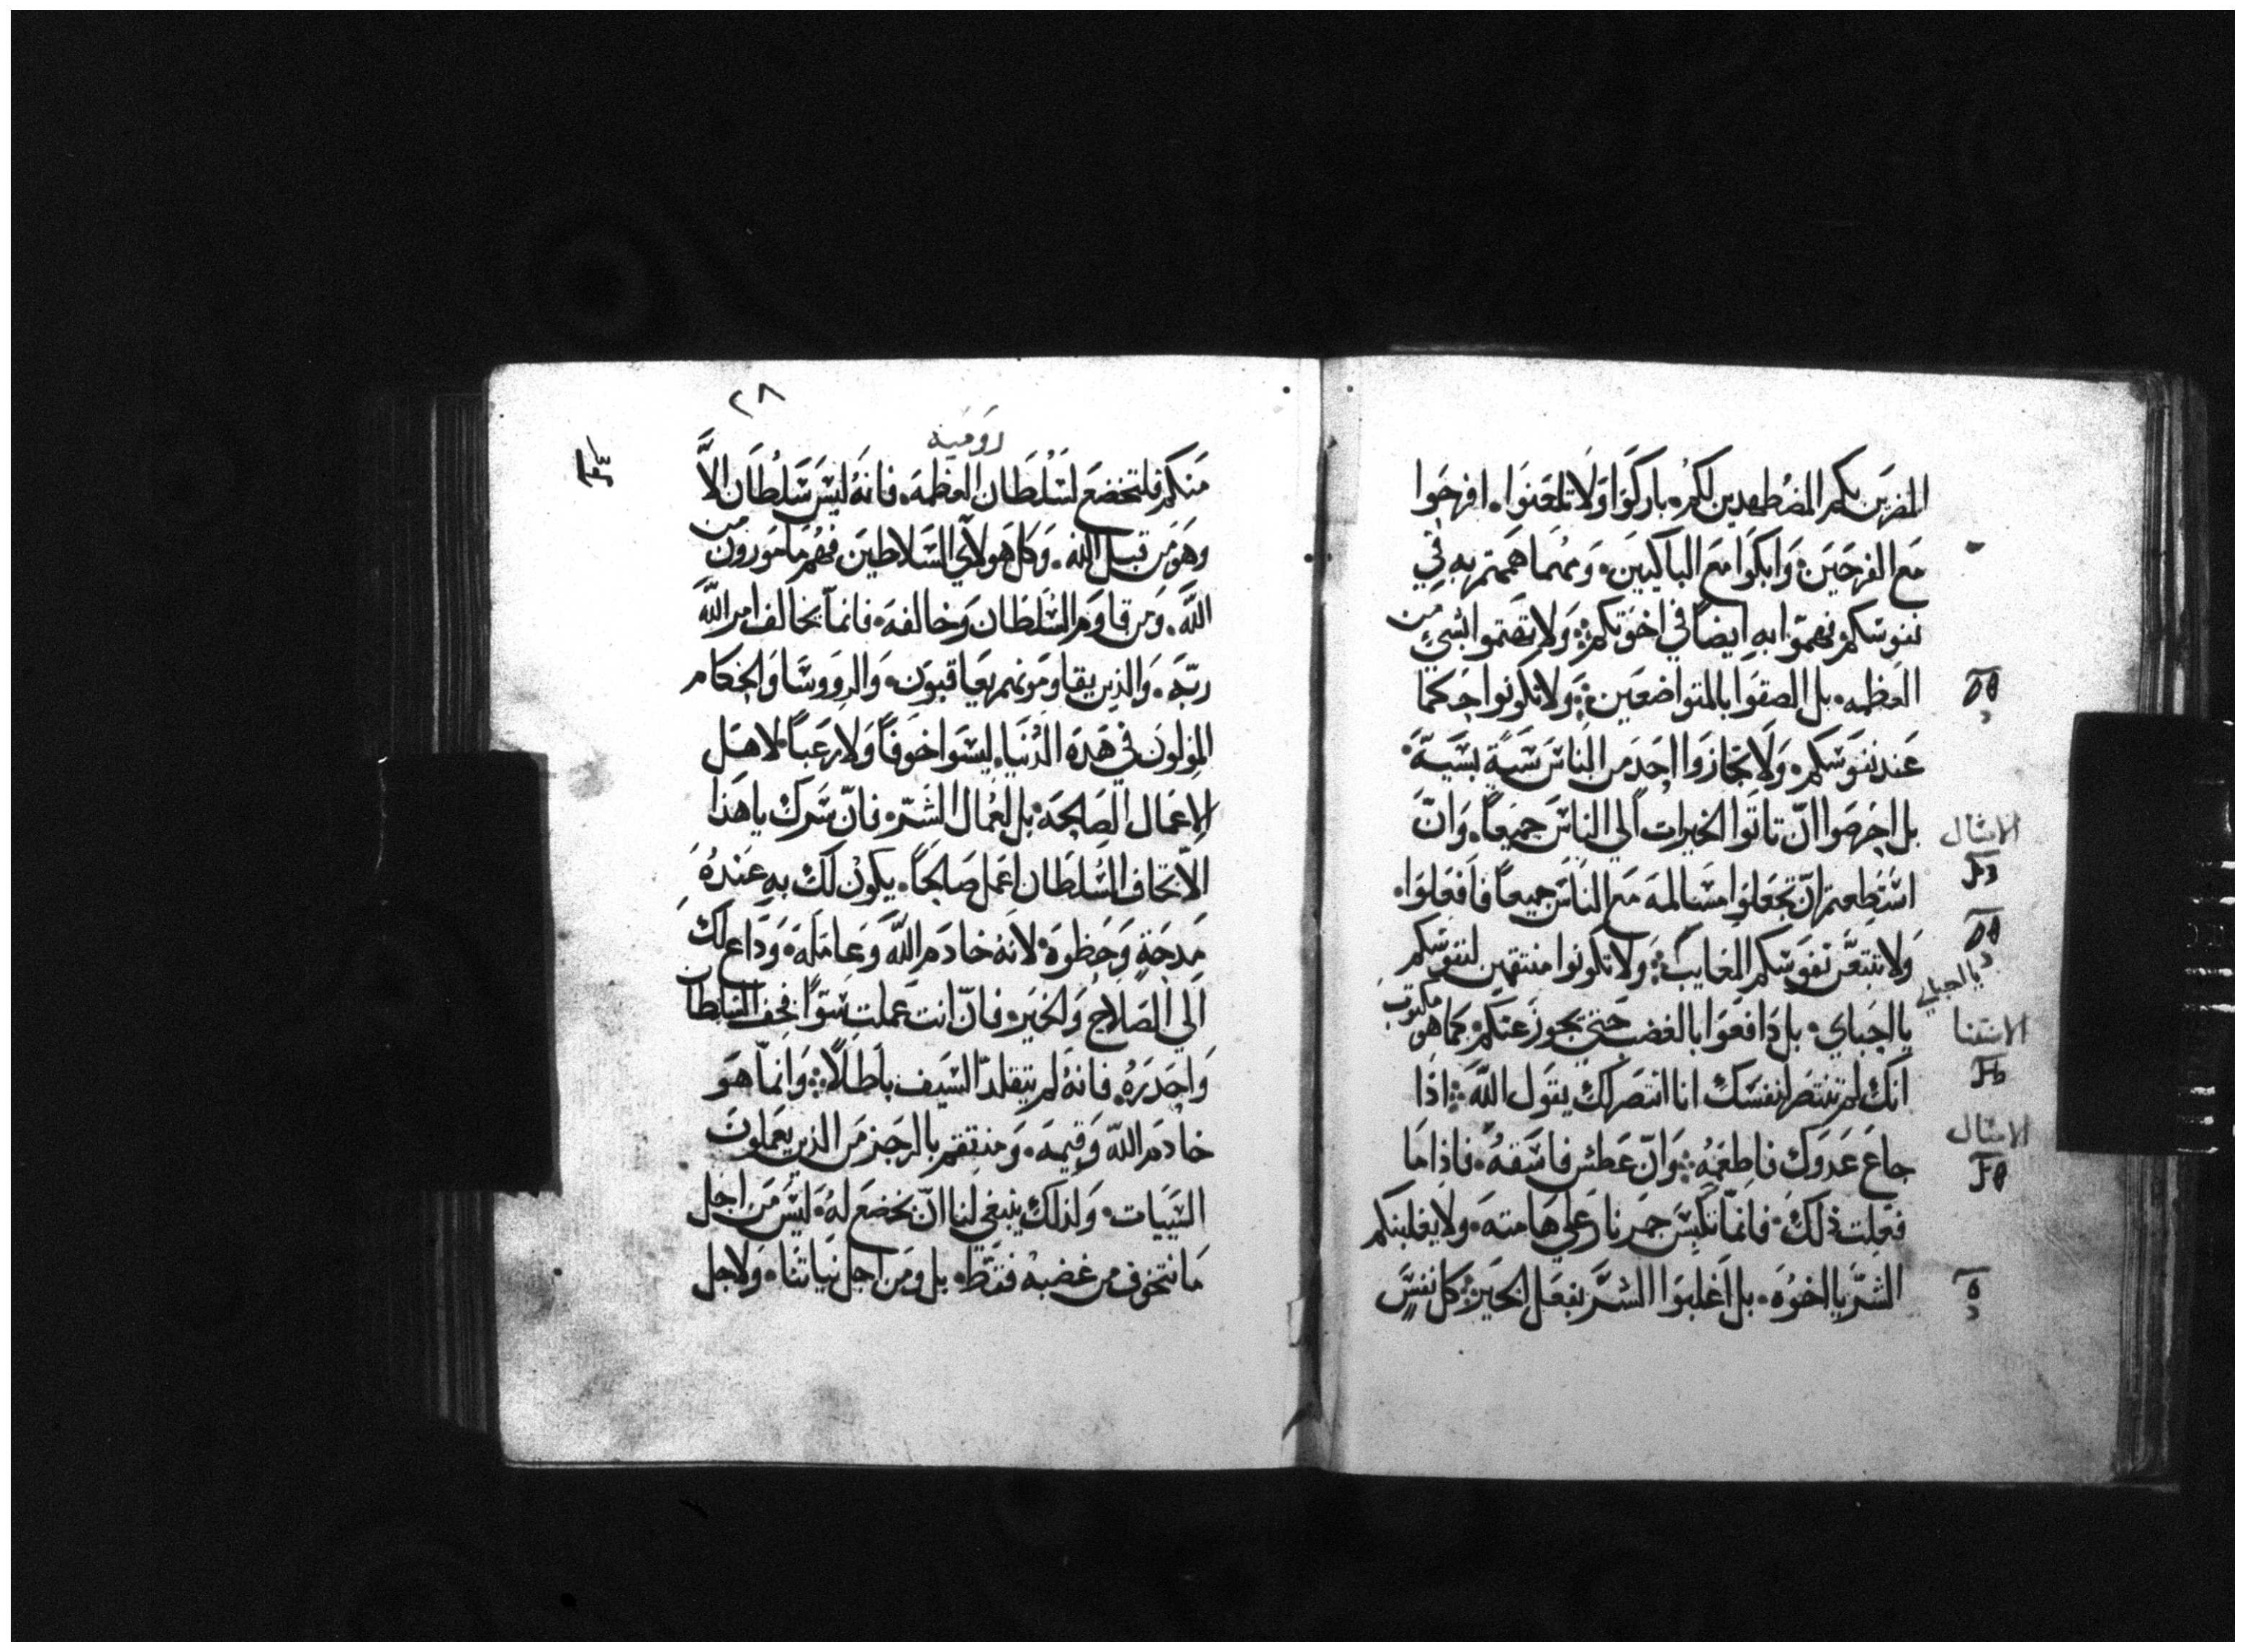 المضرين بكم المضطهدين لكم. باركوا ولا تلعنوا. افرحوا
مع الفرحين. وابكوا مع الباكيين. ومهما هممتم به في
نفوسكم فهمّوا به ايضاً في اخوتكم. ولا تهتموا بشي من
العظمه. بل الصقوا بالمتواضعين. ولا تكونوا حكما
عند نفوسكم. ولا تجازوا احد من الناس سية بسية
بل احرصوا ان تاتوا الخيرات الي الناس جميعاً. وان
استطعتم ان تجعلوا مسالمه مع الناس جميعاً فافعلوا.
ولا تتبعّ نفوسكم المغايب. ولا تكونوا منتقمين لنفوسكم
يا احباي. بل دافعوا بالغضب حتي يجوز عنكم. كما هو مكتوب
انك لم تنتصر لنفسك انا انتصر لك يقول الله. اذا
جاع عدوك فاطعمه. وان عطش فاسقه. فاذا ما
فعلت ذلك. فانما تكبس جمر نار علي هامته. ولا يغلبنكم
الشر يا اخوه. بل اغلبوا الشر بفعل الخير. كل نفس
الامثال
يا احباي
الاستثنا
الامثال
٢٨
روميه
منكم فلتخضع لسلطان العظمه. فانه ليس سلطان الاّ
وهو من قبل الله. وكل هولاي السلاطين فهم مامورون من
الله. ومن قاوم السلطان وخالفه. فانما يخالف امر الله
ربه. والذين يقاومونهم يعاقبون. والرووسا والحكام
المولون في هذه الدنيا. ليسوا خوفاً ولا رعباً لاهل
الاعمال الصالحه. بل لعمال الشر. فان سرك يا هذا
الاّ تخاف السلطان اعمل صالحاً. يكون لك به عنده
مدحة وحظوة. لانه خادم الله وعامله. وداع لك
الي الصلاح والخير. فان انت عملت سوًا فخف السلطان
واحذره. فانه لم يتقلد السيف باطلاً. وانما هو
خادم الله وقيمه. ومنتقم بالرجز من الذين يعملون
السييات. ولذلك ينبغي لنا ان نخضع له. ليس من اجل
ما نتخوف من غضبه فقط. بل ومن اجل نياتنا. ولاجل